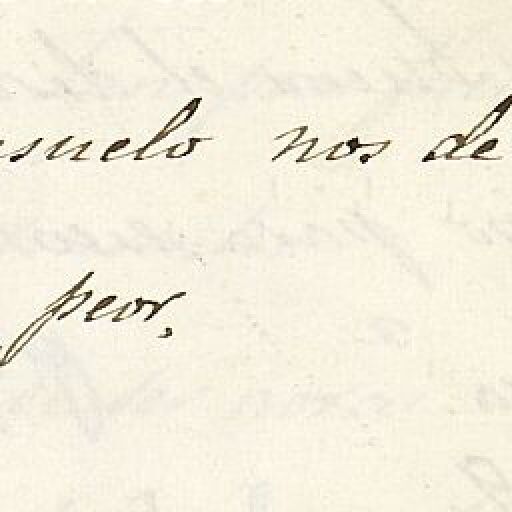 suelo nos de
peor,